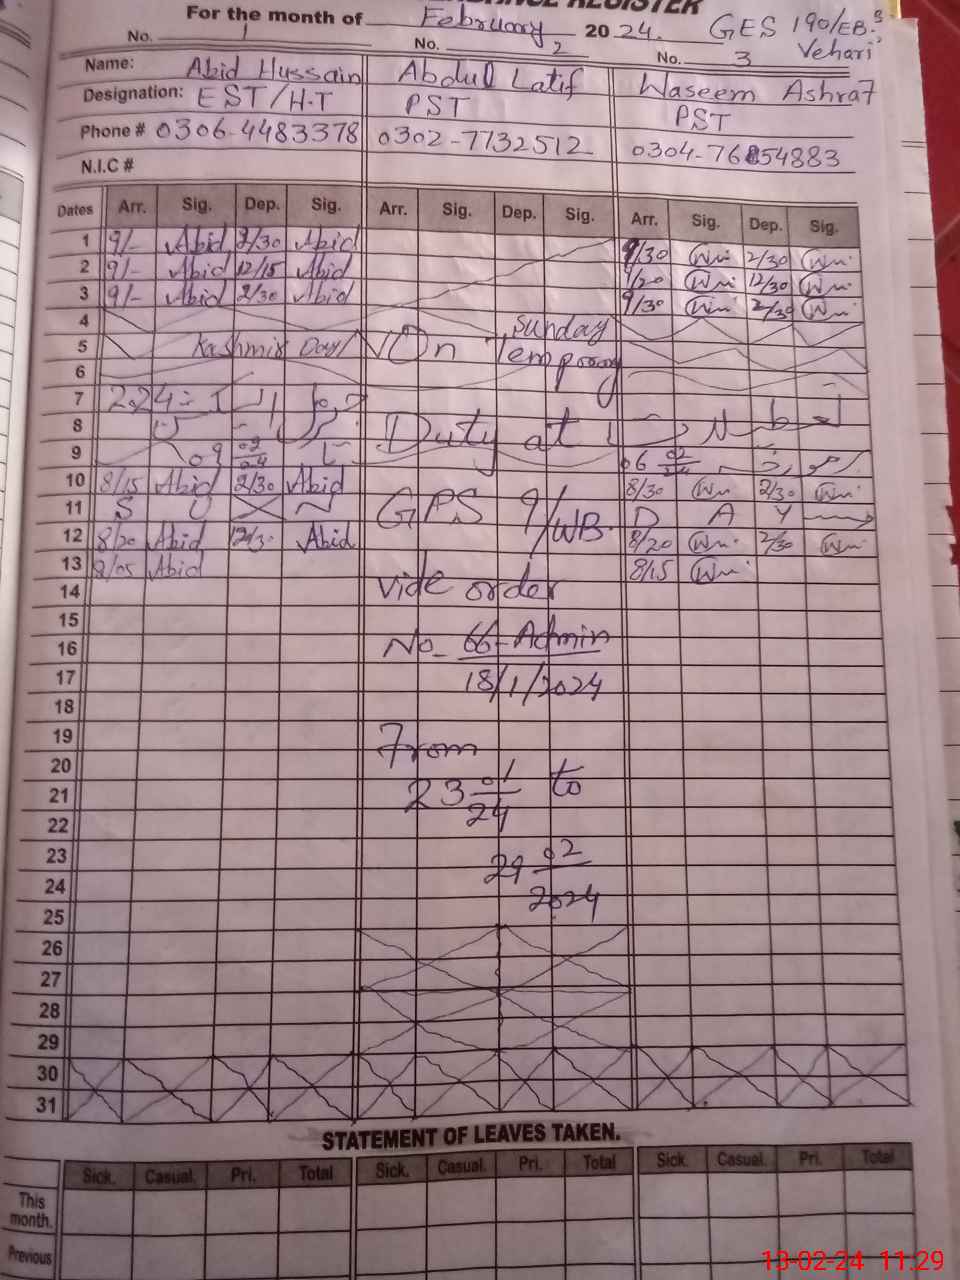 For the month of February 2024. GES 190/EB.
Vehari
No. 1 No. 2 No. 3
Name: Abid Hussain Abdul Latif Waseem Ashraf
Designation: EST/H.T PST PST
Phone # 0306-4483378 0302-7732512 0304-7654883
N.I.C #
Dates Arr. Sig. Dep. Sig. Arr. Sig. Dep. Sig. Arr. Sig. Dep. Sig.
1 9/- Abid 2/30 Abid 9/30 2/30
2 9/- Abid 12/15 Abid 9/20 12/30
3 9/- Abid 2/30 Abid 9/30 2/30
4 Sunday
5 Kashmir Day On Temporary
6
7
8 Duty at
9
10 8/15 Abid 2/30 Abid 8/30 2/30
11 S U N GPS 9/WB. D A Y
12 8/20 Abid 12/30 Abid 8/20 2/30
13 8/05 Abid 8/15
14 vide order
15
16 No. 66-Admin
17 18/1/2024
18
19 From
20
21 23 01/24 to
22
23 29 02/2024
24
25
26
27
28
29
30
31
STATEMENT OF LEAVES TAKEN.
Sick. Casual. Pri. Total Sick. Casual. Pri. Total Sick. Casual. Pri. Total
This month.
Previous
13-02-24 11:29